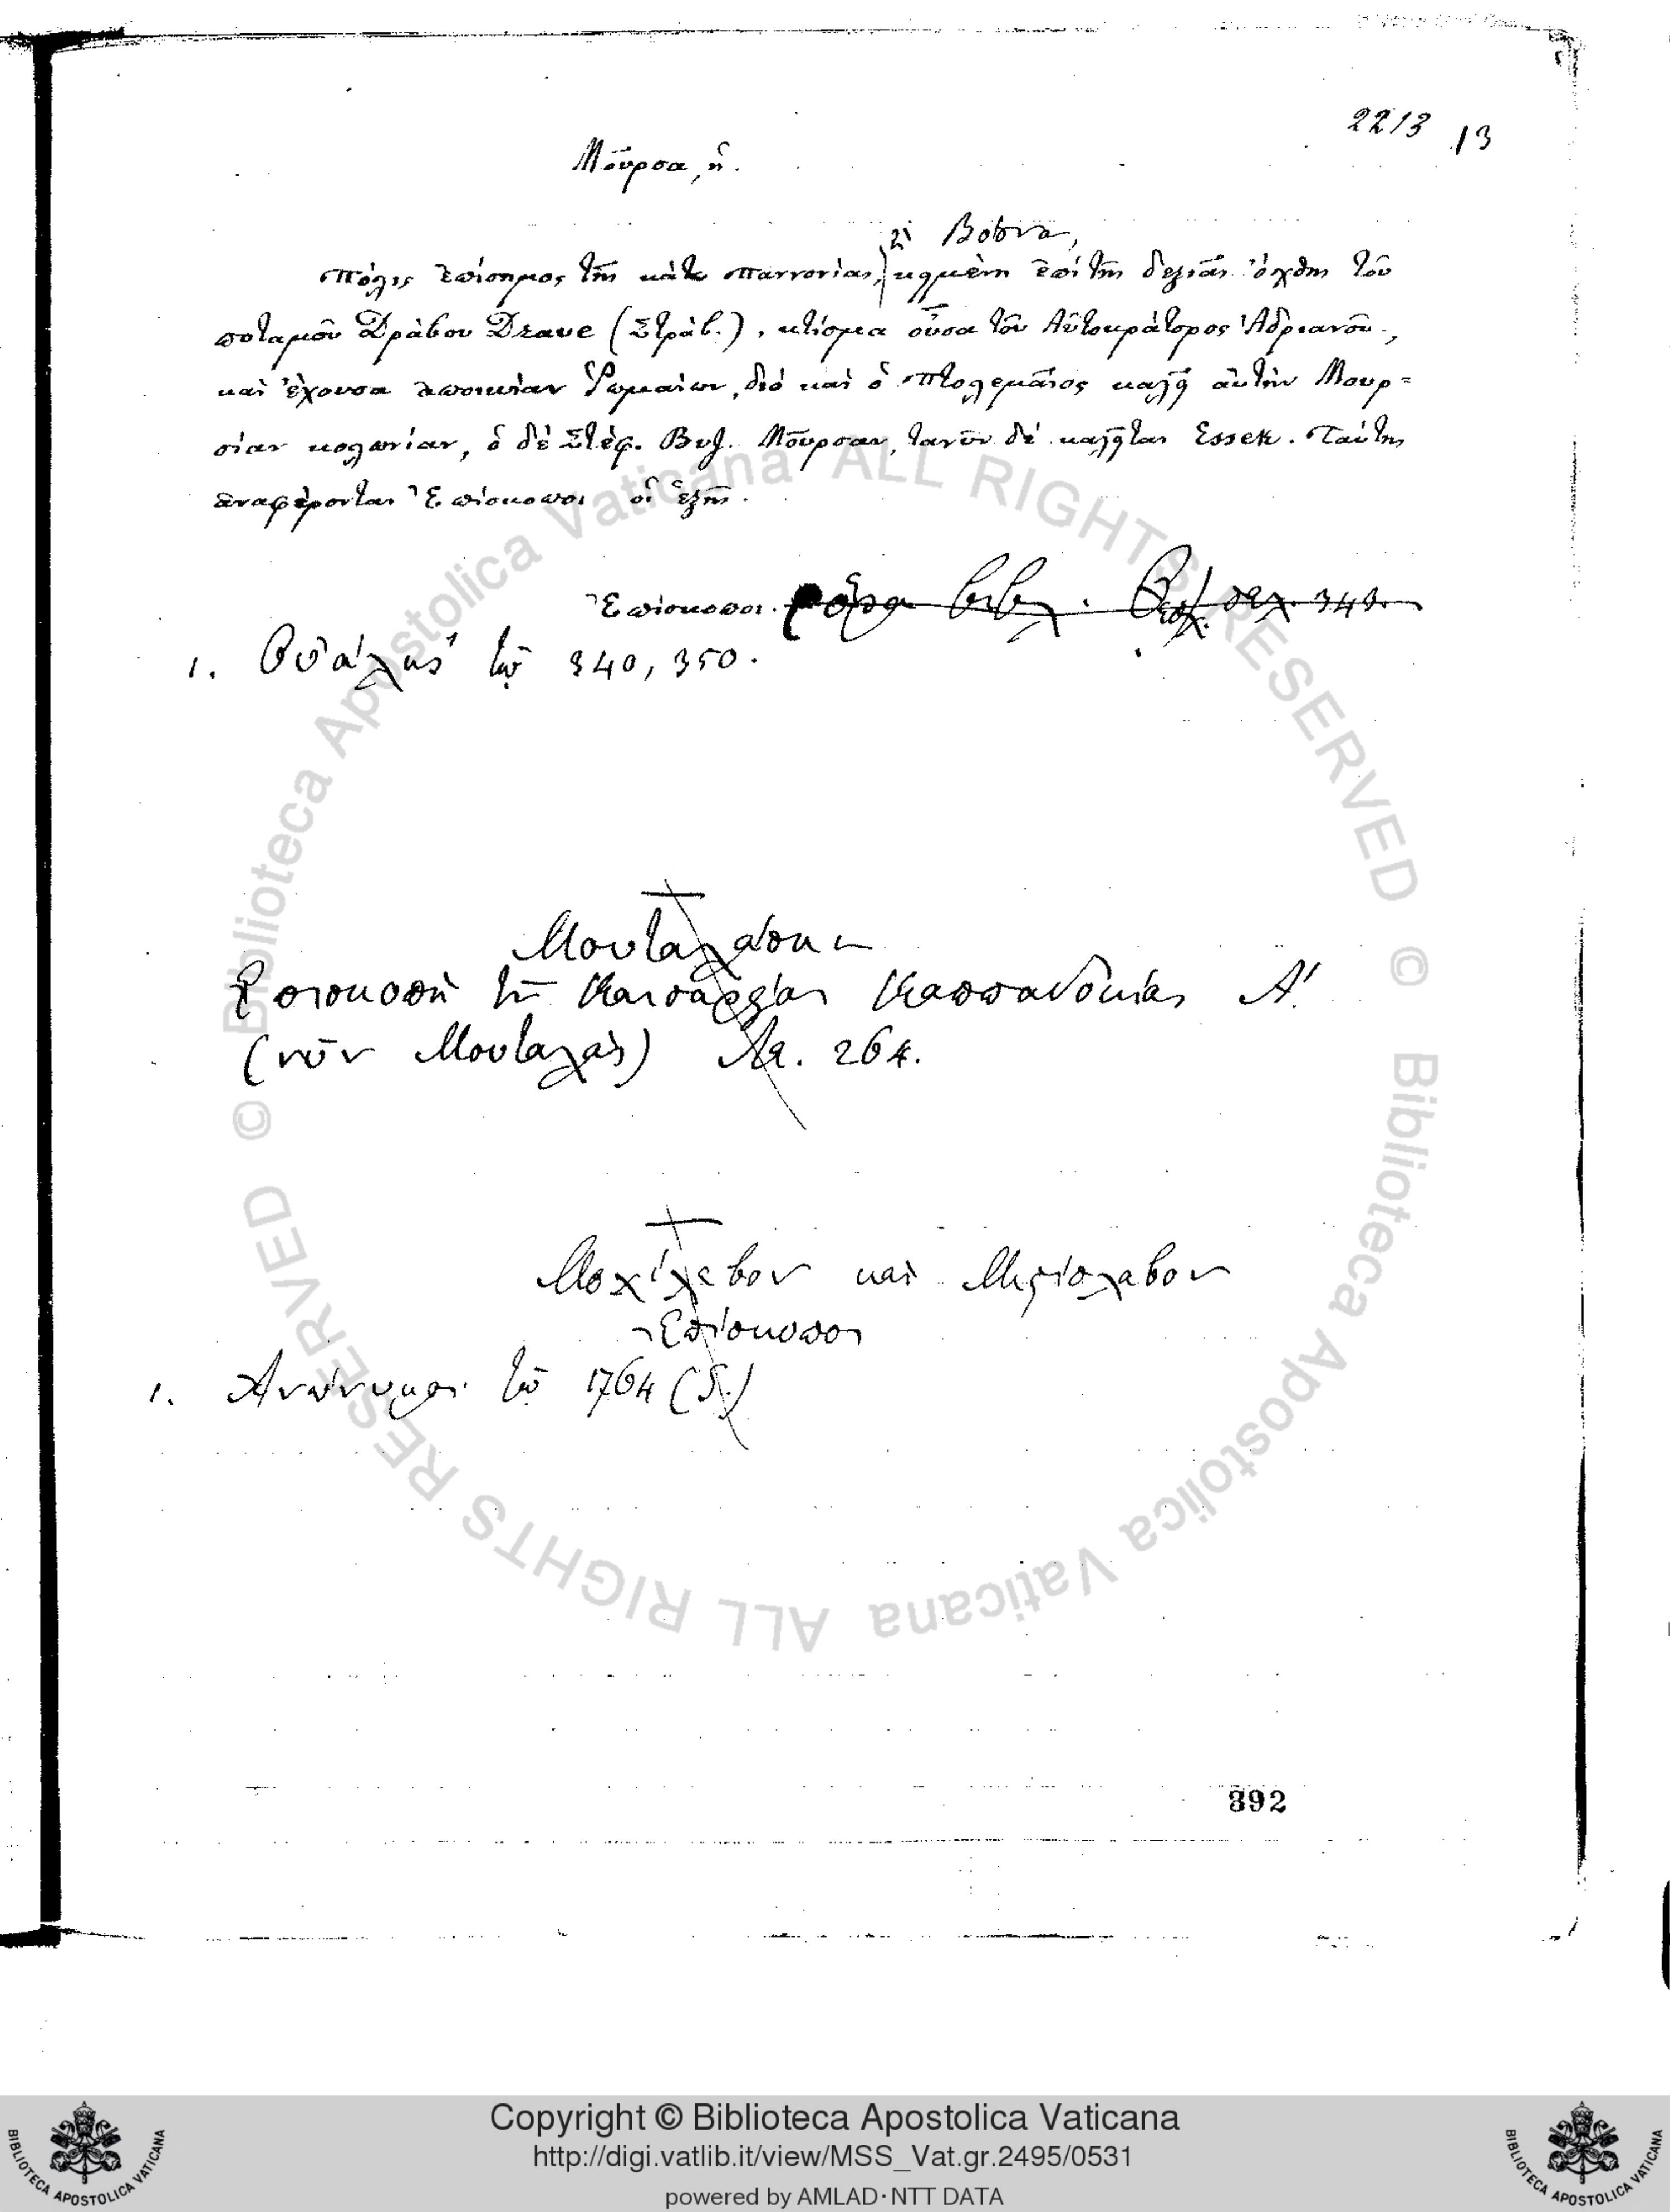 2213 13
Μοῦρσα, ἡ.
ἢ Βοσνα,
Πόλις ἐπίσημος τῆς κάτω Παννονίας, κειμένη ἐπὶ τῆς δεξιᾶς ὄχθης τοῦ
ποταμοῦ Δράβου Drave (Στράβ.), κτίσμα οὖσα τοῦ Αὐτοκράτορος Ἀδριανοῦ,
καὶ ἔχουσα ἀποικίαν Ῥωμαίων, διὸ καὶ ὁ Πτολεμαῖος καλεῖ αὐτὴν Μουρ=
σίαν κολωνίαν, ὁ δὲ Στέφ. Βυζ. Μοῦρσαν, τανῦν δὲ καλεῖται Essek. Ταύτης
ἀναφέρονται Ἐπίσκοποι οἱ ἑξῆς.
Ἐπίσκοποι. σελ. 343.
1. Οὐάλης τῷ 340, 350.
Μουταλάσκη
Ἐπισκοπὴ τῆς Καισαρείας Καππαδοκίας Α΄.
(νῦν Μουταλὰς) Λε. 264.
Μοχίλεβον καὶ Μιτίσλαβον
Ἐπίσκοποι
1. Ἀνώνυμοι τῷ 1764 (S.)
392
© Biblioteca Apostolica Vaticana ALL RIGHTS RESERVED
© Biblioteca Apostolica Vaticana ALL RIGHTS RESERVED
Copyright © Biblioteca Apostolica Vaticana
http://digi.vatlib.it/view/MSS_Vat.gr.2495/0531
powered by AMLAD·NTT DATA
BIBLIOTECA APOSTOLICA VATICANA
BIBLIOTECA APOSTOLICA VATICANA